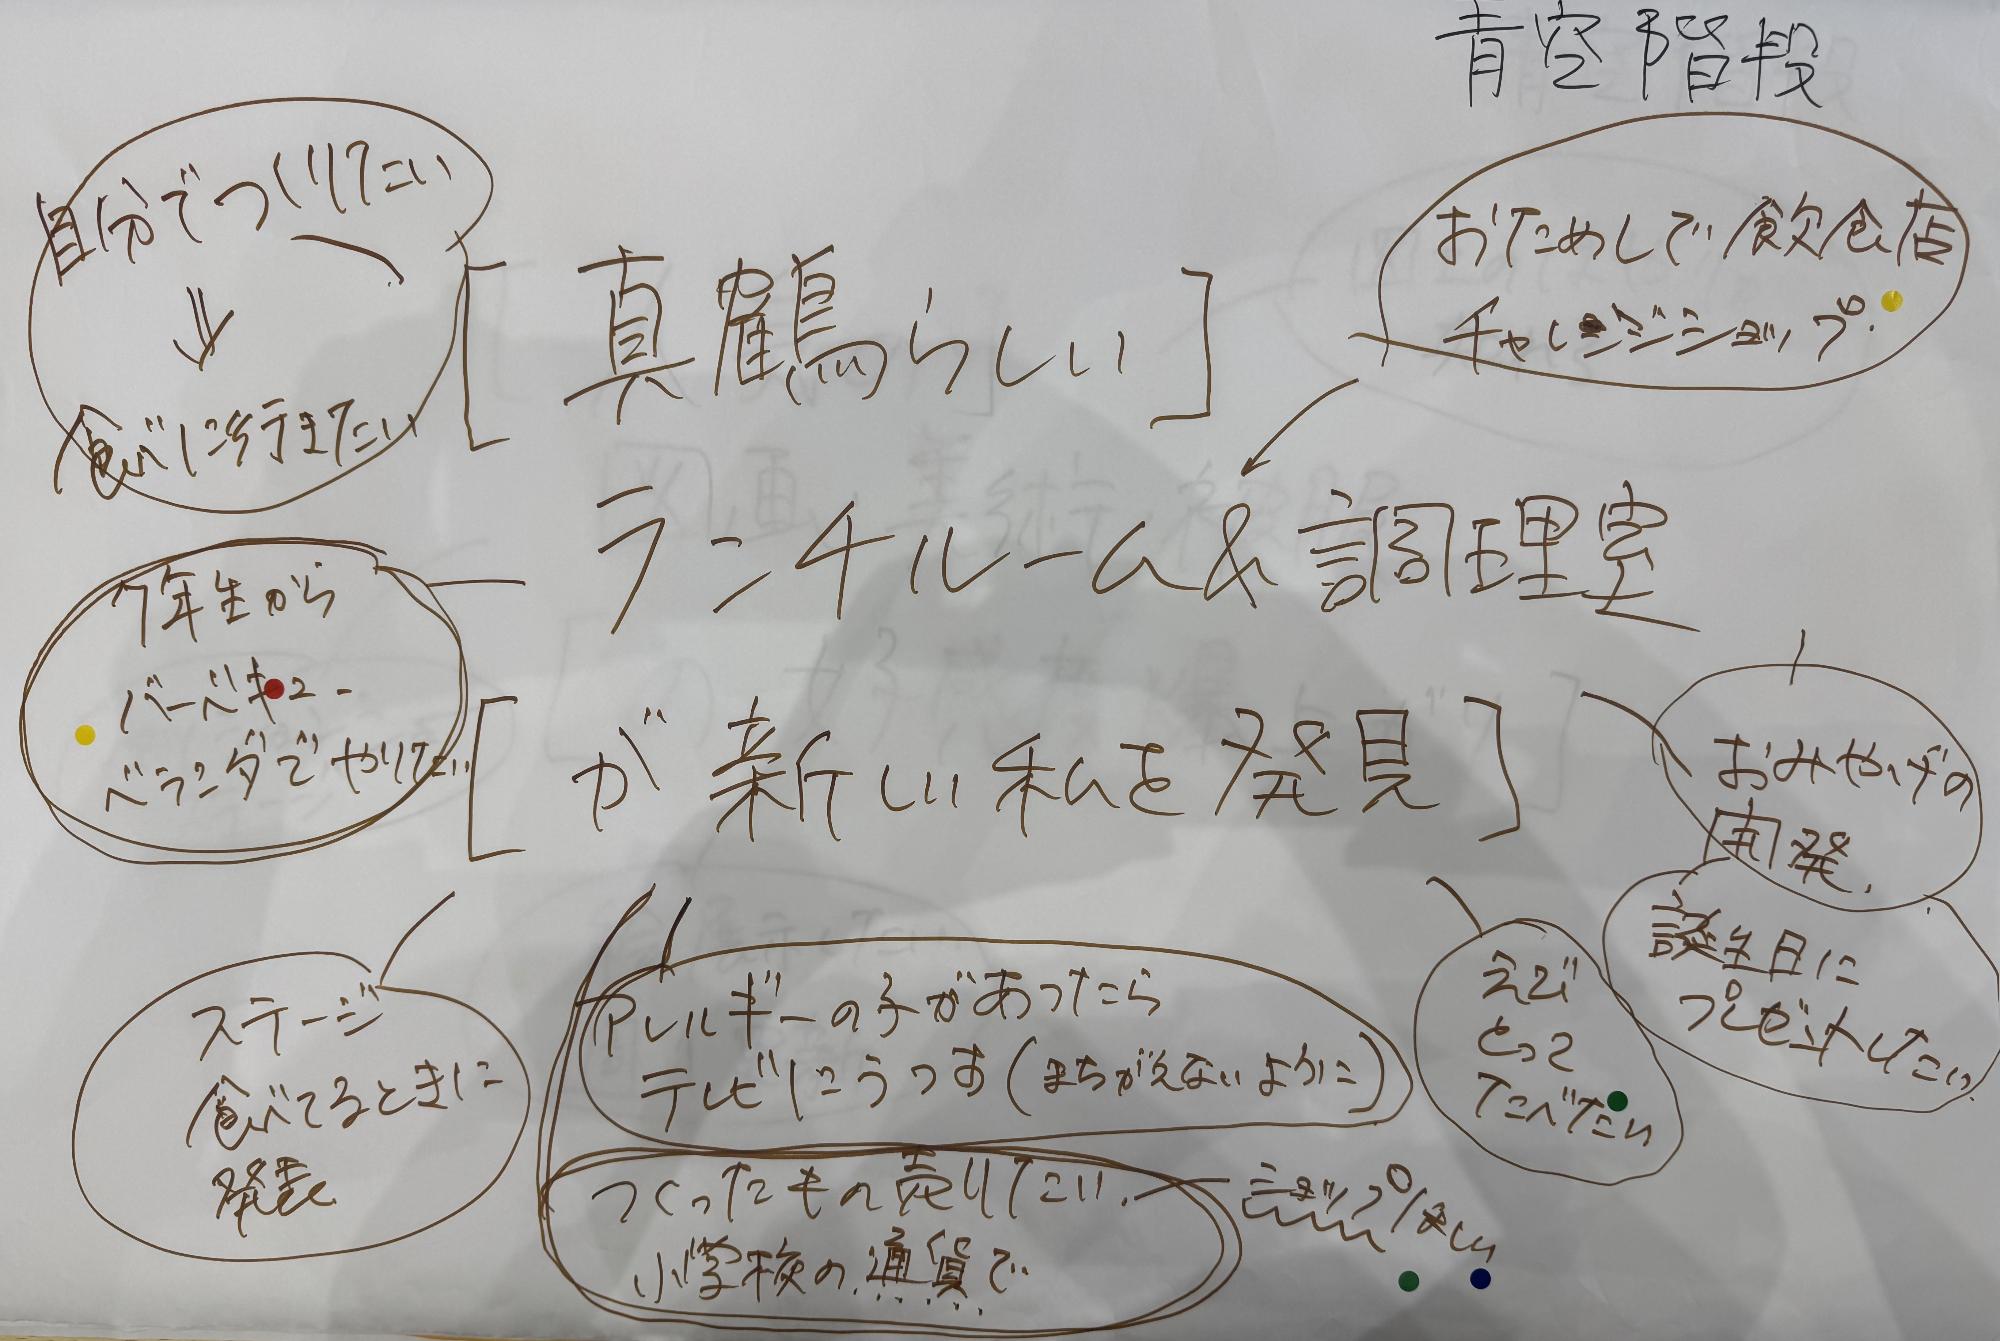 青空階段
自分でつくりたい
食べに行きたい
[真鶴らしい]
おためしで飲食店
チャレンジショップ
ランチルーム&調理室
7年生から
バーベキュー
ベランダでやりたい
[が新しい私を発見]
おみやげの
開発
誕生日に
プレゼントしたい
ステージ
食べてるときに
発表
アレルギーの子があったら
テレビにうつす(まちがえないように)
えび
とって
たべたい
つくったもの売りたい
小学校の通貨で
ショップほしい